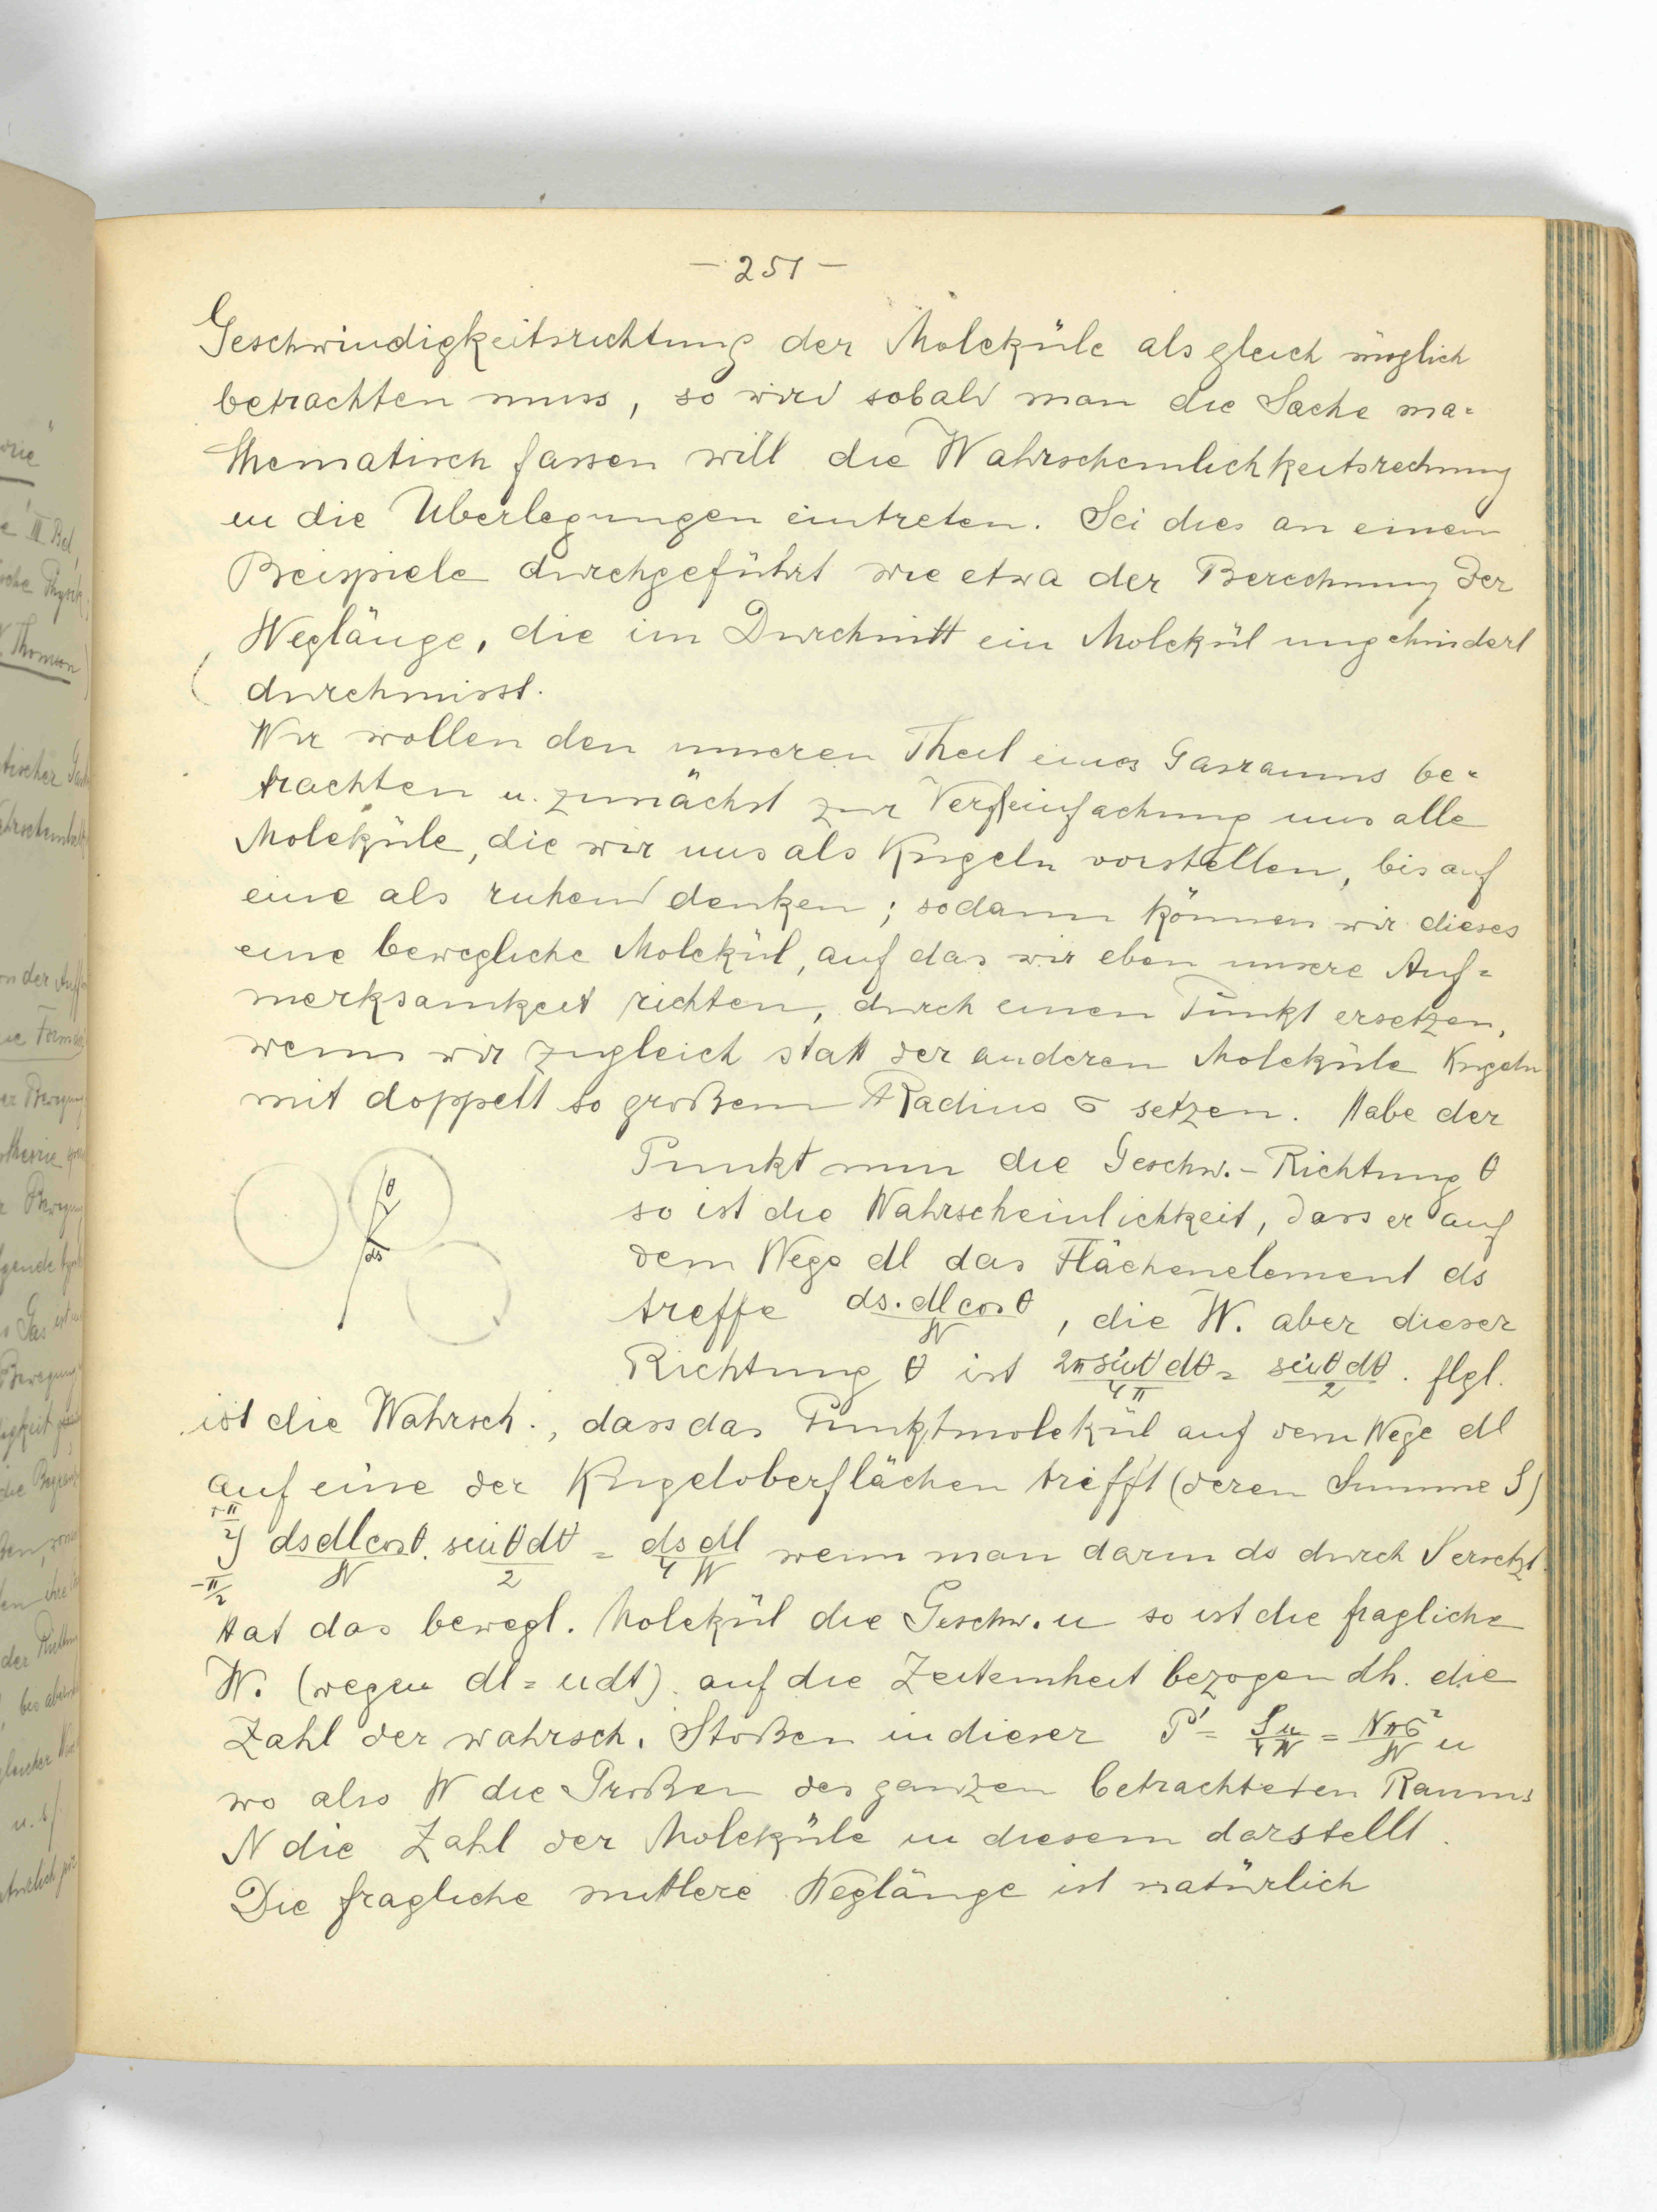 - 251 -
Geschwindigkeitsrichtung der Moleküle als gleich möglich
betrachten muss, so wird sobald man die Sache ma=
thematisch fassen will die Wahrscheinlichkeitsrechnung
in die Überlegungen eintreten. Sei dies an einem
Beispiele durchgeführt wie etwa der Berechnung der
Weglänge, die im Durchnitt ein Molekül ungehindert
durchmisst.
Wir wollen den inneren Theil eines Gasraums be=
trachten u. zunächst zur Vereinfachung uns alle
Moleküle, die wir uns als Kugeln vorstellen, bis auf
eine als ruhend denken; sodann können wir dieses
eine bewegliche Molekül, auf das wir eben unsere Auf=
merksamkeit richten, durch einen Punkt ersetzen,
wenn wir zugleich statt der anderen Moleküle Kugeln
mit doppelt so großem Radius σ setzen. Habe der
Punkt nun die Geschw.-Richtung θ
so ist die Wahrscheinlichkeit, dass er auf
dem Wege dl das Flächenelement ds
treffe ds.dl cosθ/W, die W. aber dieser
Richtung θ ist 2π sinθ dθ/4π = sinθ dθ/2. flgl.
θ
ds
ist die Wahrsch., dass das Punktmolekül auf dem Wege dl
auf eine der Kugeloberflächen trifft (deren Summe S)
+π/2 ∫ -π/2 ds dl cosθ/W . sinθ dθ/2 = ds dl/4W wenn man darin ds durch S ersetzt.
Hat das bewegl. Molekül die Geschw. u so ist die fragliche
W. (wegen dl = udt) auf die Zeiteinheit bezogen dh. die
Zahl der wahrsch. Stoßen in dieser P' = Su/4W = Nπσ²/W u
wo also W die Großen des ganzen betrachteten Raums
N die Zahl der Moleküle in diesem darstellt.
Die fragliche mittlere Weglänge ist natürlich